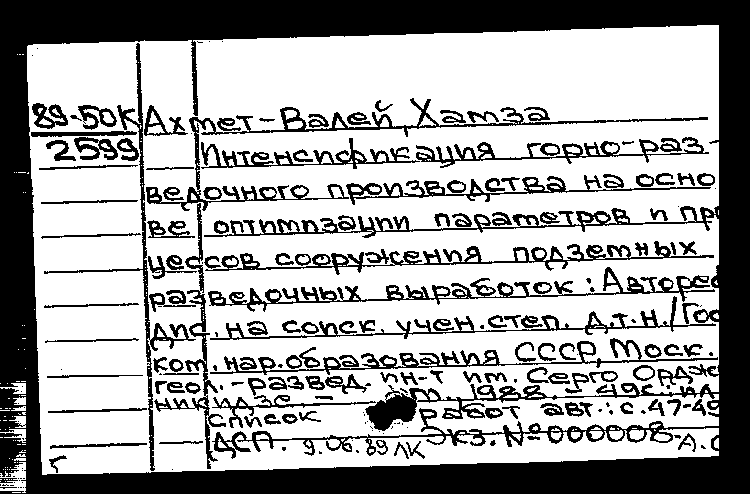 89-50К Ахмет-Валей, Хамза
2599 Интенсификация горно-раз-
ведочного производства на осно
ве оптимизации параметров и пр
цессов сооружения подземных
разведочных выработок: Авторе
дис. на соиск. учен. степ. д.т.н. / Гос
ком. нар. образования СССР, Моск.
геол.-развед. ин-т им. Серго Ордж
никидзе. - М., 1988. - 49с.: ил
Список работ авт.: с.47-49
ДСП. 9.06.89 ЛК Экз. №000008